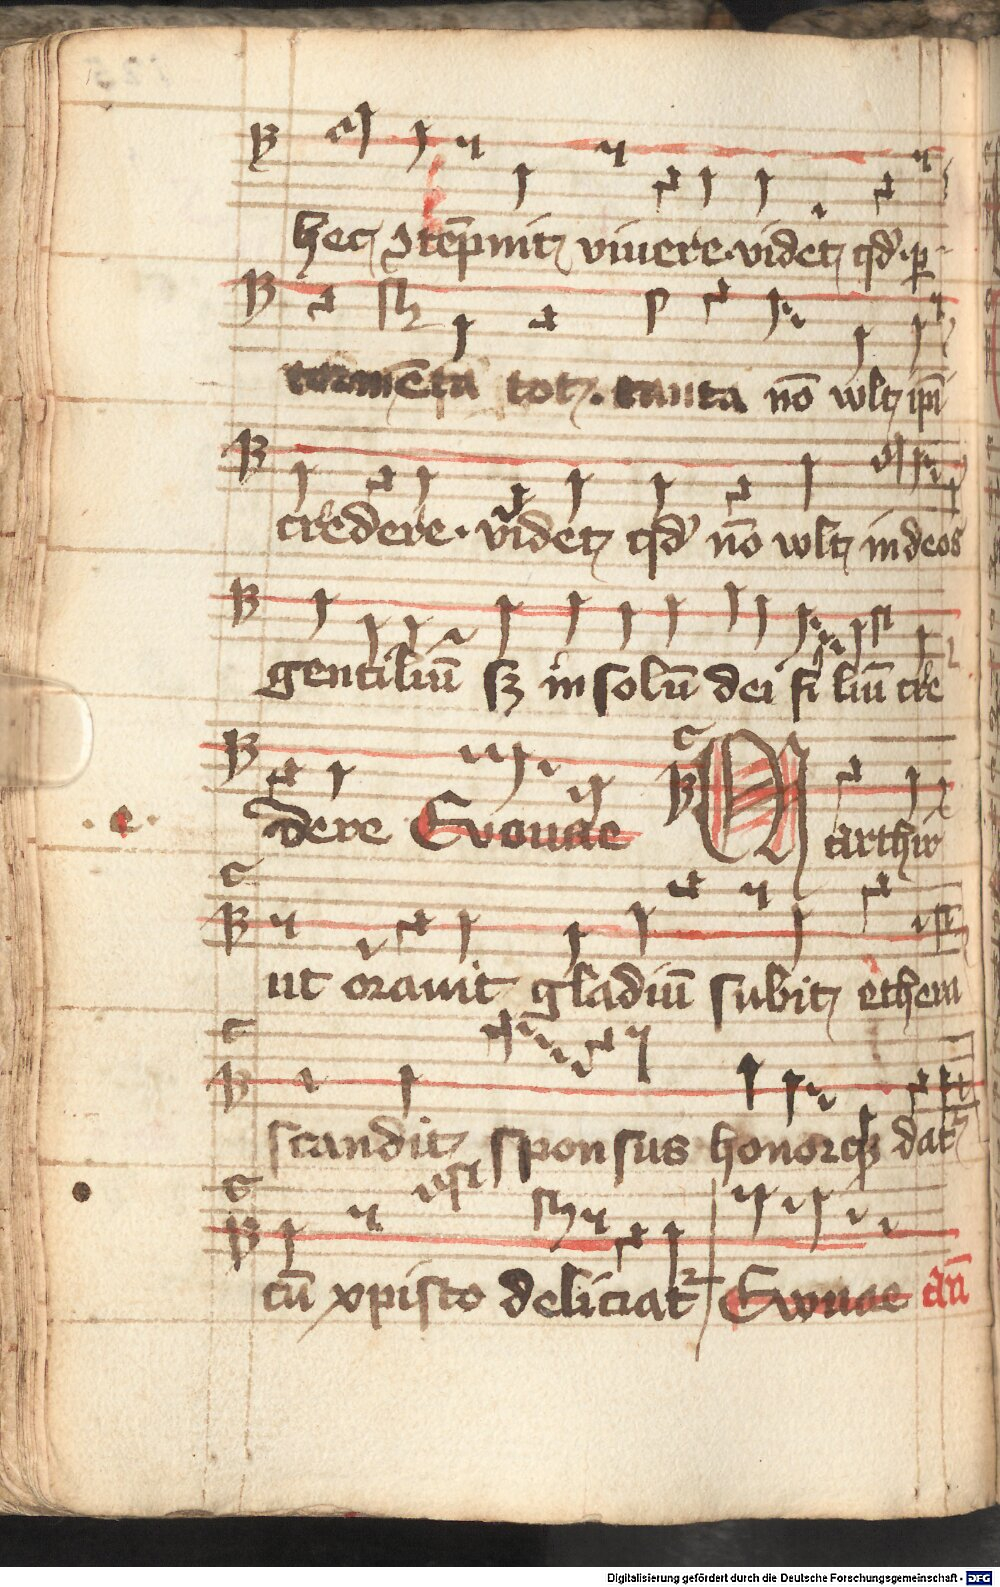 hec ꝯtēpnit viuere · videt qd' · ꝑ-
tormēta tot · tanta nō wlt ipī
credere · videt qd' nō wlt in deos
gentiliū sꝫ in solū dei filiū cre
dere Evouae Marthir
· e ·
ut orauit gladiū subit ethera
scandit sponsus honorqꝫ dat
cū xpisto deliciat᷑ Evouae añ
Digitalisierung gefördert durch die Deutsche Forschungsgemeinschaft - DFG